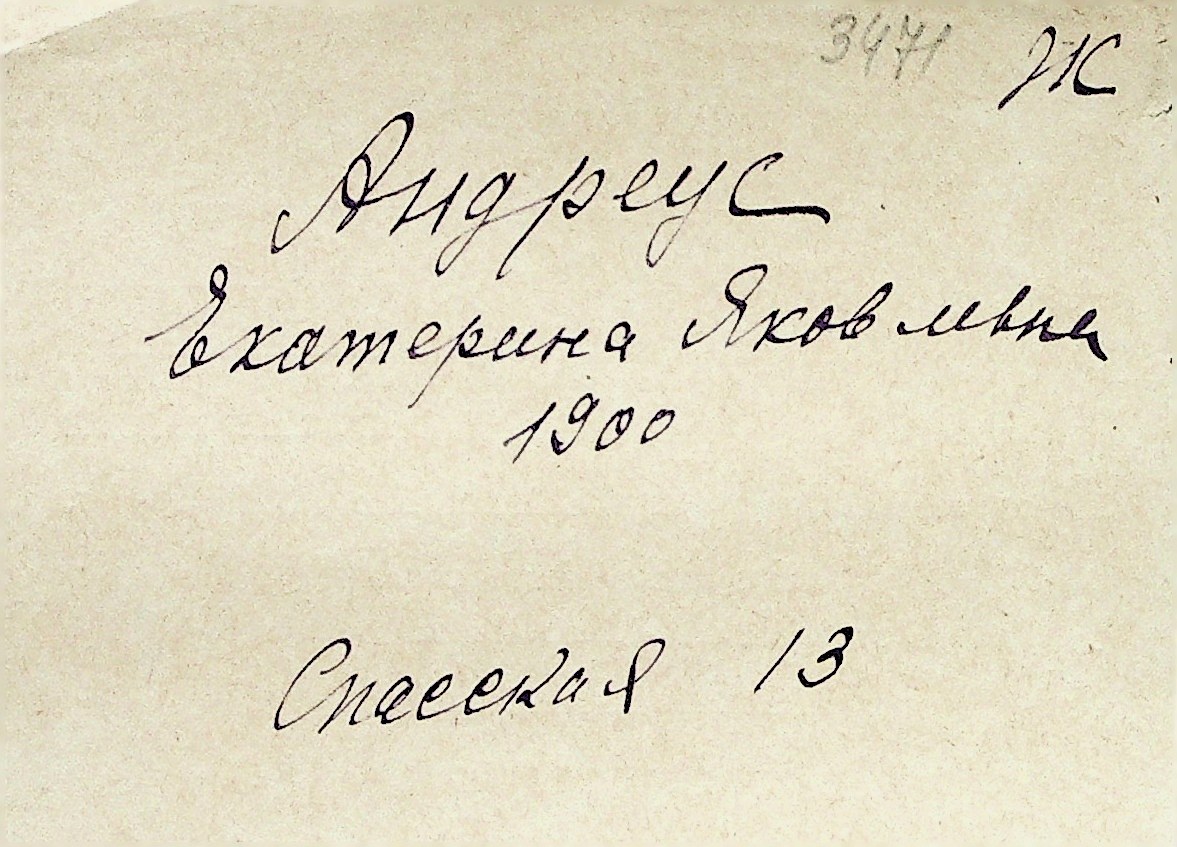 3471 Ж
Андреус
Екатерина Яковлевна
1900
Спасская 13